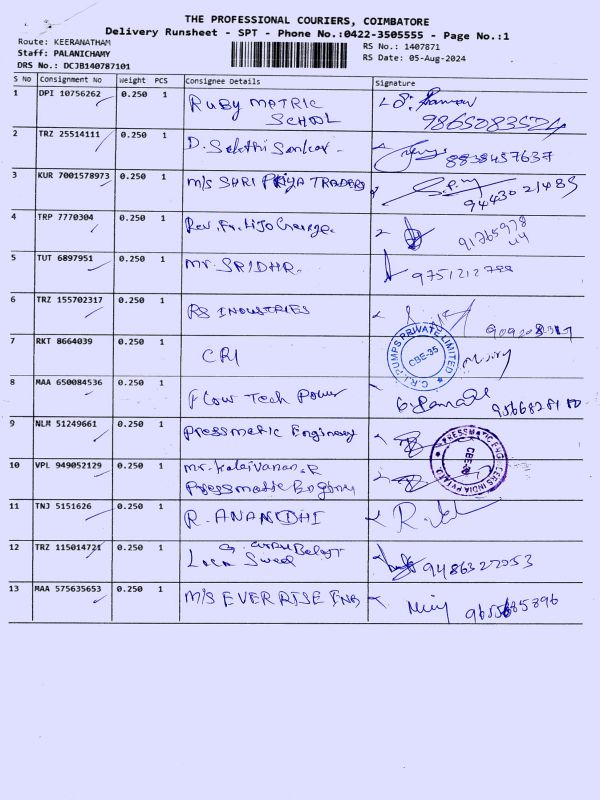 THE PROFESSIONAL COURIERS, COIMBATORE
Delivery Runsheet - SPT - Phone No.:0422-3505555 - Page No.:1
Route: KEERANATHAM
RS No.: 1407871
Staff: PALANICHAMY
RS Date: 05-Aug-2024
DRS No.: DCJB140787101
S No Consignment No Weight PCS Consignee Details Signature
1 DPI 10756262 0.250 1 RUBY MATRIC
SCHOOL
9865283524
2 TRZ 25514111 0.250 1 D. Sakthi Sankar -
8838457637
3 KUR 7001578973 0.250 1 M/S SHRI PRIYA TRADERS
4 TRP 7770304 0.250 1 Rev. Fr. Lijo George.
5 TUT 6897951 0.250 1 Mr. SRIDHR. 9751212788
6 TRZ 155702317 0.250 1 RS INDUSTRIES
7 RKT 8664039 0.250 1 CRI
C.R.I. PUMPS PRIVATE LIMITED
CBE-35
8 MAA 650084536 0.250 1 Flow Tech Power
9 NLM 51249661 0.250 1 Pressmatic Engineers
PRESSMATIC ENGINEERS INDIA PVT LTD
10 VPL 949052129 0.250 1 Mr. Kalaivanan. R
Pressmatic
11 TNJ 5151626 0.250 1 R. ANANDHI
12 TRZ 115014721 0.250 1
9486327053
13 MAA 575635653 0.250 1 M/S EVER RISE ENG
9655685896